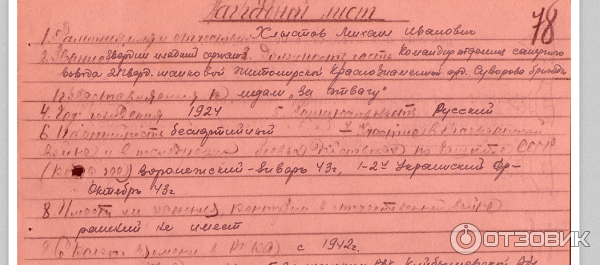 Наградной лист
78
1. Фамилия имя и отчество Хлыстов Михаил Иванович
2. Звание гвардии младший сержант 3. Должность часть Командир отделения саперного
взвода 24 гвард. танковой Житомирской Краснознаменной орд. Суворова бригады
Представляется к медали "за отвагу"
4. Год рождения 1924 Национальность Русский
6. Партийность беспартийный Участие в гражданской
войне и в последующих боевых действиях по защите СССР
Воронежский - январь 43г, 1-й Украинский Фр-
Октябрь 43г
8. Имеет ли ранения, контузии в отечественной войне
ранений не имеет
9. С какого времени в РККА с 1942г.
ОТЗОВИК